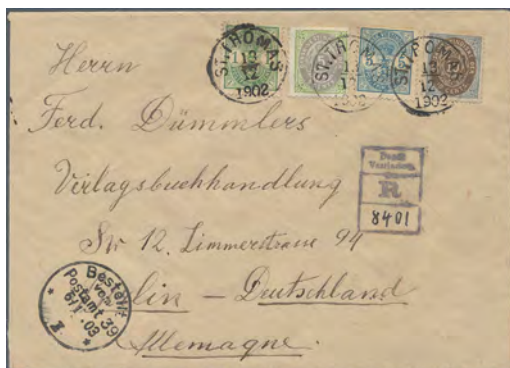 ST. THOMAS
13
12
1902
ST. THOM
13
12
1902
ST. THOMAS
13
12
1902
Herrn
Ferd. Dümmlers
Verlagsbuchhandlung
SW 12. Zimmerstrasse 94
Berlin – Deutschland
Allemagne.
R
8401
Bestellt
vom
Postamt 39
6/1 03